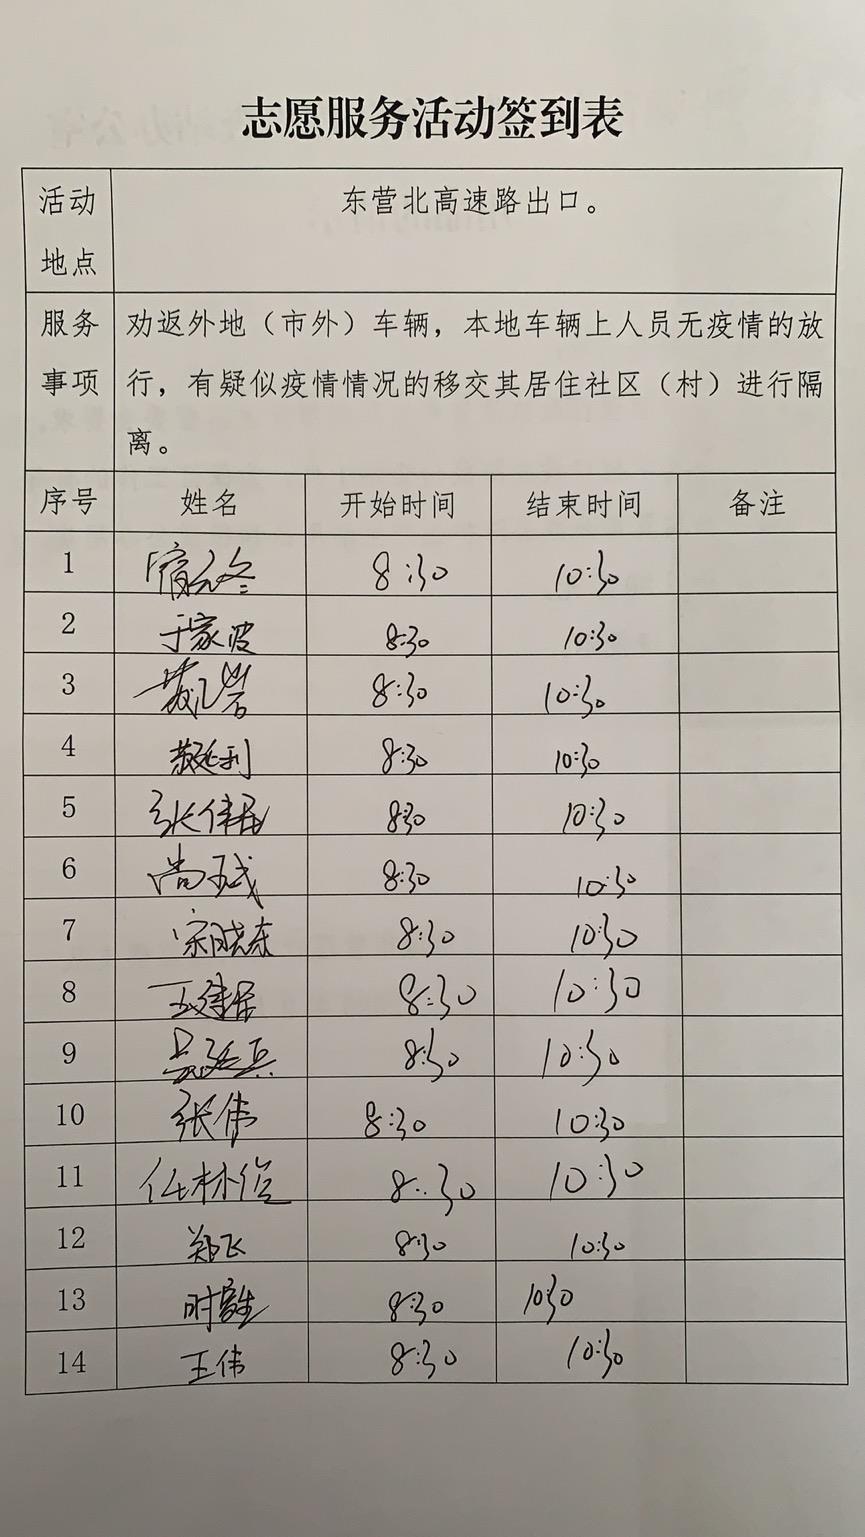 志愿服务活动签到表
活动地点 东营北高速路出口。
服务事项 劝返外地（市外）车辆，本地车辆上人员无疫情的放
行，有疑似疫情情况的移交其居住社区（村）进行隔
离。
序号 姓名 开始时间 结束时间 备注
1 8:30 10:30
2 于家波 8:30 10:30
3 8:30 10:30
4 8:30 10:30
5 张伟 8:30 10:30
6 尚 8:30 10:30
7 宋晓东 8:30 10:30
8 王建 8:30 10:30
9 吴延兵 8:30 10:30
10 张伟 8:30 10:30
11 任林 8:30 10:30
12 郑飞 8:30 10:30
13 时 8:30 10:30
14 王伟 8:30 10:30